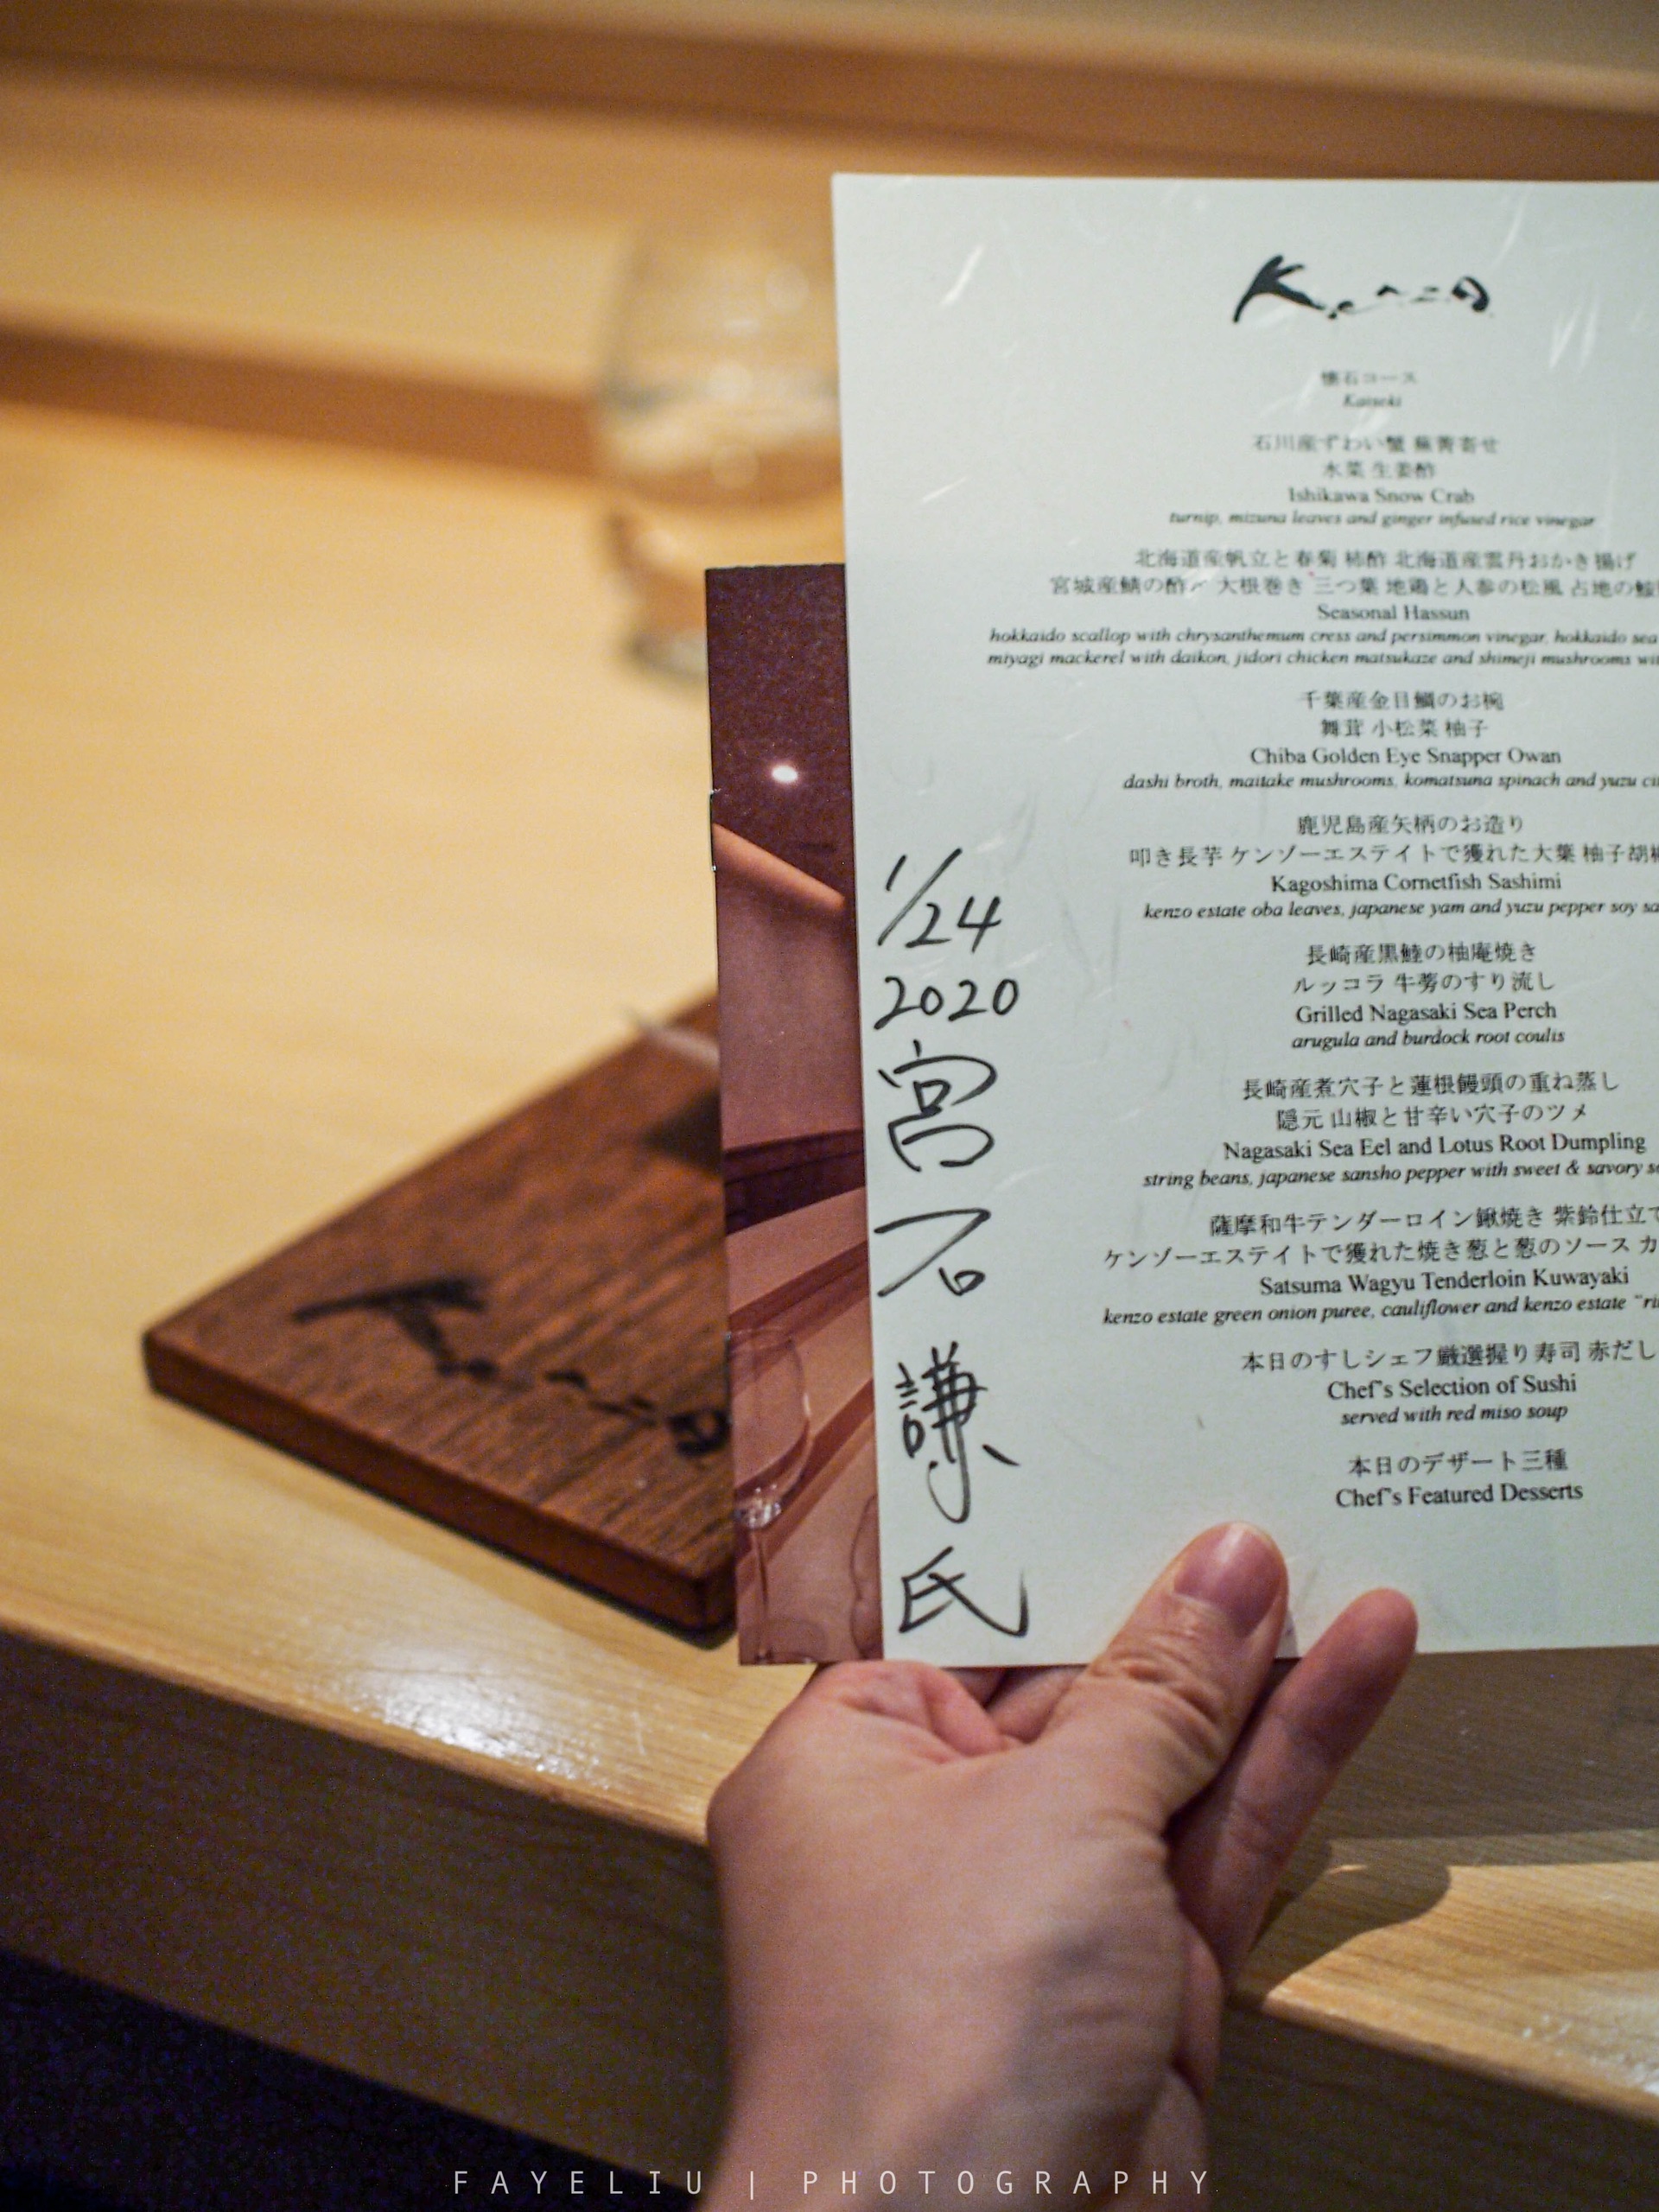 Kenzo
懐石コース
Kaiseki
石川産ずわい蟹 蕪菁寄せ
水菜 生姜酢
Ishikawa Snow Crab
turnip, mizuna leaves and ginger infused rice vinegar
北海道産帆立と春菊 柿酢 北海道産雲丹おかき揚げ
宮城産鯖の酢〆 大根巻き 三つ葉 地鶏と人参の松風 占地の
Seasonal Hassun
hokkaido scallop with chrysanthemum cress and persimmon vinegar, hokkaido sea
miyagi mackerel with daikon, jidori chicken matsukaze and shimeji mushrooms
千葉産金目鯛のお椀
舞茸 小松菜 柚子
Chiba Golden Eye Snapper Owan
dashi broth, maitake mushrooms, komatsuna spinach and yuzu
鹿児島産矢柄のお造り
叩き長芋 ケンゾーエステイトで獲れた大葉 柚子胡
Kagoshima Cornetfish Sashimi
kenzo estate oba leaves, japanese yam and yuzu pepper soy
長崎産黒鯥の柚庵焼き
ルッコラ 牛蒡のすり流し
Grilled Nagasaki Sea Perch
arugula and burdock root coulis
長崎産煮穴子と蓮根饅頭の重ね蒸し
隠元 山椒と甘辛い穴子のツメ
Nagasaki Sea Eel and Lotus Root Dumpling
string beans, japanese sansho pepper with sweet & savory
薩摩和牛テンダーロイン鍬焼き 紫鈴仕立て
ケンゾーエステイトで獲れた焼き葱と葱のソース カ
Satsuma Wagyu Tenderloin Kuwayaki
kenzo estate green onion puree, cauliflower and kenzo estate
本日のすしシェフ厳選握り寿司 赤だし
Chef's Selection of Sushi
served with red miso soup
本日のデザート三種
Chef's Featured Desserts
1/24
2020
宮
石
謙
氏
Kenzo
FAYELIU | PHOTOGRAPHY